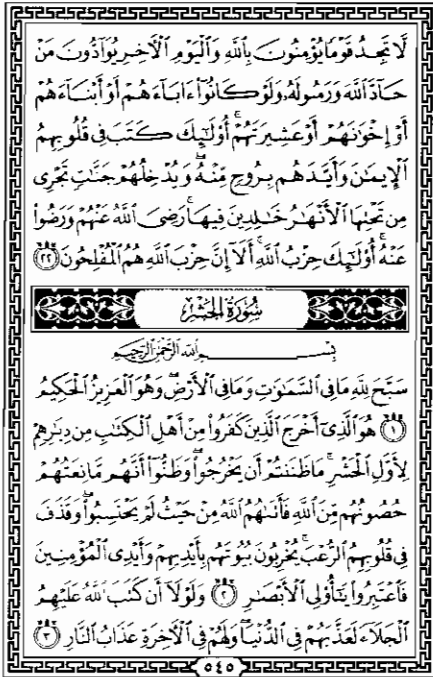 لَّا تَجِدُ قَوْمًا يُؤْمِنُونَ بِٱللَّهِ وَٱلْيَوْمِ ٱلْأَخِرِ يُوَآدُّونَ مَنْ
حَآدَّ ٱللَّهَ وَرَسُولَهُۥ وَلَوْ كَانُوٓا۟ ءَابَآءَهُمْ أَوْ أَبْنَآءَهُمْ
أَوْ إِخْوَٰنَهُمْ أَوْ عَشِيرَتَهُمْ ۚ أُو۟لَٰٓئِكَ كَتَبَ فِى قُلُوبِهِمُ
ٱلْإِيمَٰنَ وَأَيَّدَهُم بِرُوحٍ مِّنْهُ ۖ وَيُدْخِلُهُمْ جَنَّٰتٍ تَجْرِى
مِن تَحْتِهَا ٱلْأَنْهَٰرُ خَٰلِدِينَ فِيهَا ۚ رَضِىَ ٱللَّهُ عَنْهُمْ وَرَضُوا۟
عَنْهُ ۚ أُو۟لَٰٓئِكَ حِزْبُ ٱللَّهِ ۚ أَلَآ إِنَّ حِزْبَ ٱللَّهِ هُمُ ٱلْمُفْلِحُونَ ٢٢
سُورَةُ الحَشْرِ
بِسْمِ ٱللَّهِ ٱلرَّحْمَٰنِ ٱلرَّحِيمِ
سَبَّحَ لِلَّهِ مَا فِى ٱلسَّمَٰوَٰتِ وَمَا فِى ٱلْأَرْضِ ۖ وَهُوَ ٱلْعَزِيزُ ٱلْحَكِيمُ
١ هُوَ ٱلَّذِىٓ أَخْرَجَ ٱلَّذِينَ كَفَرُوا۟ مِنْ أَهْلِ ٱلْكِتَٰبِ مِن دِيَٰرِهِمْ
لِأَوَّلِ ٱلْحَشْرِ ۚ مَا ظَنَنتُمْ أَن يَخْرُجُوا۟ ۖ وَظَنُّوٓا۟ أَنَّهُم مَّانِعَتُهُمْ
حُصُونُهُم مِّنَ ٱللَّهِ فَأَتَىٰهُمُ ٱللَّهُ مِنْ حَيْثُ لَمْ يَحْتَسِبُوا۟ ۖ وَقَذَفَ
فِى قُلُوبِهِمُ ٱلرُّعْبَ ۚ يُخْرِبُونَ بُيُوتَهُم بِأَيْدِيهِمْ وَأَيْدِى ٱلْمُؤْمِنِينَ
فَٱعْتَبِرُوا۟ يَٰٓأُو۟لِى ٱلْأَبْصَٰرِ ٢ وَلَوْلَآ أَن كَتَبَ ٱللَّهُ عَلَيْهِمُ
ٱلْجَلَآءَ لَعَذَّبَهُمْ فِى ٱلدُّنْيَا ۖ وَلَهُمْ فِى ٱلْأَخِرَةِ عَذَابُ ٱلنَّارِ ٣
٥٤٥